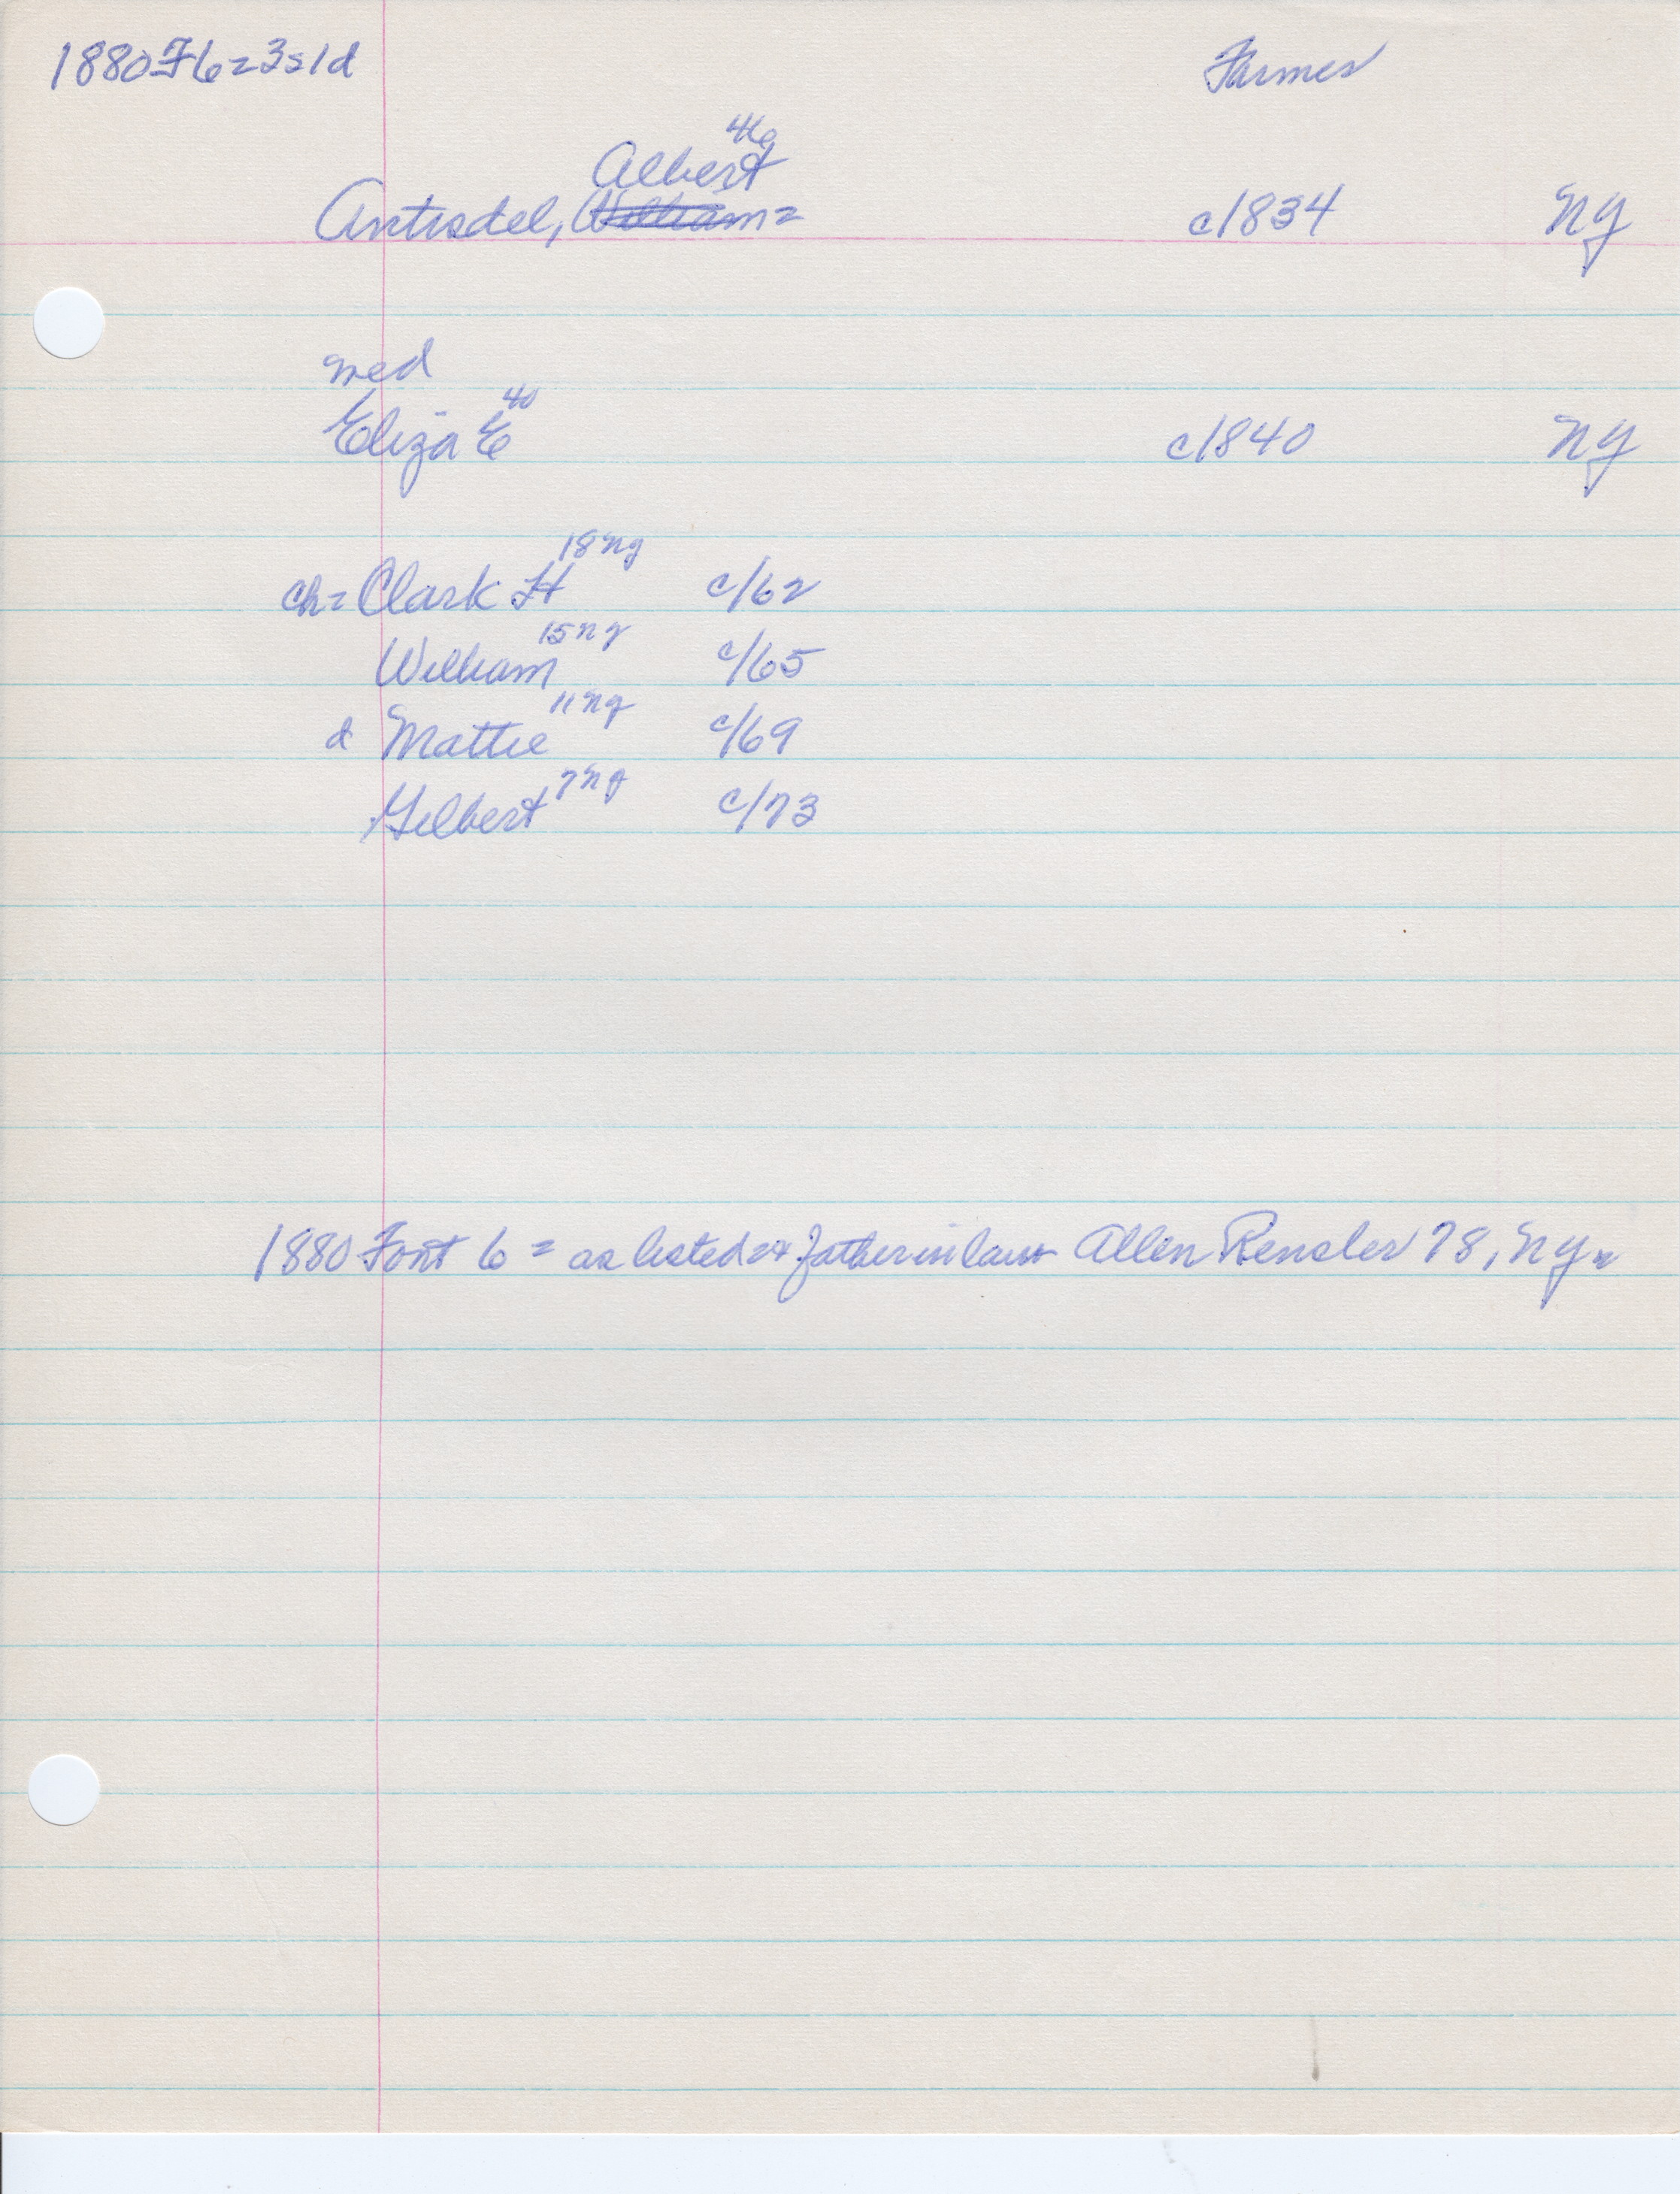 1880 F6=3s1d Farmer
46
Albert
Antisdel, William= c1834 NY
med
40
Eliza E c1840 NY
18 NY
ch= Clark H c/62
15 NY
William c/65
11 NY
d Mattie c/69
7 NY
Gilbert c/73
1880 Font 6 = as listed=+ father in law Allen Rensler 78, NY=